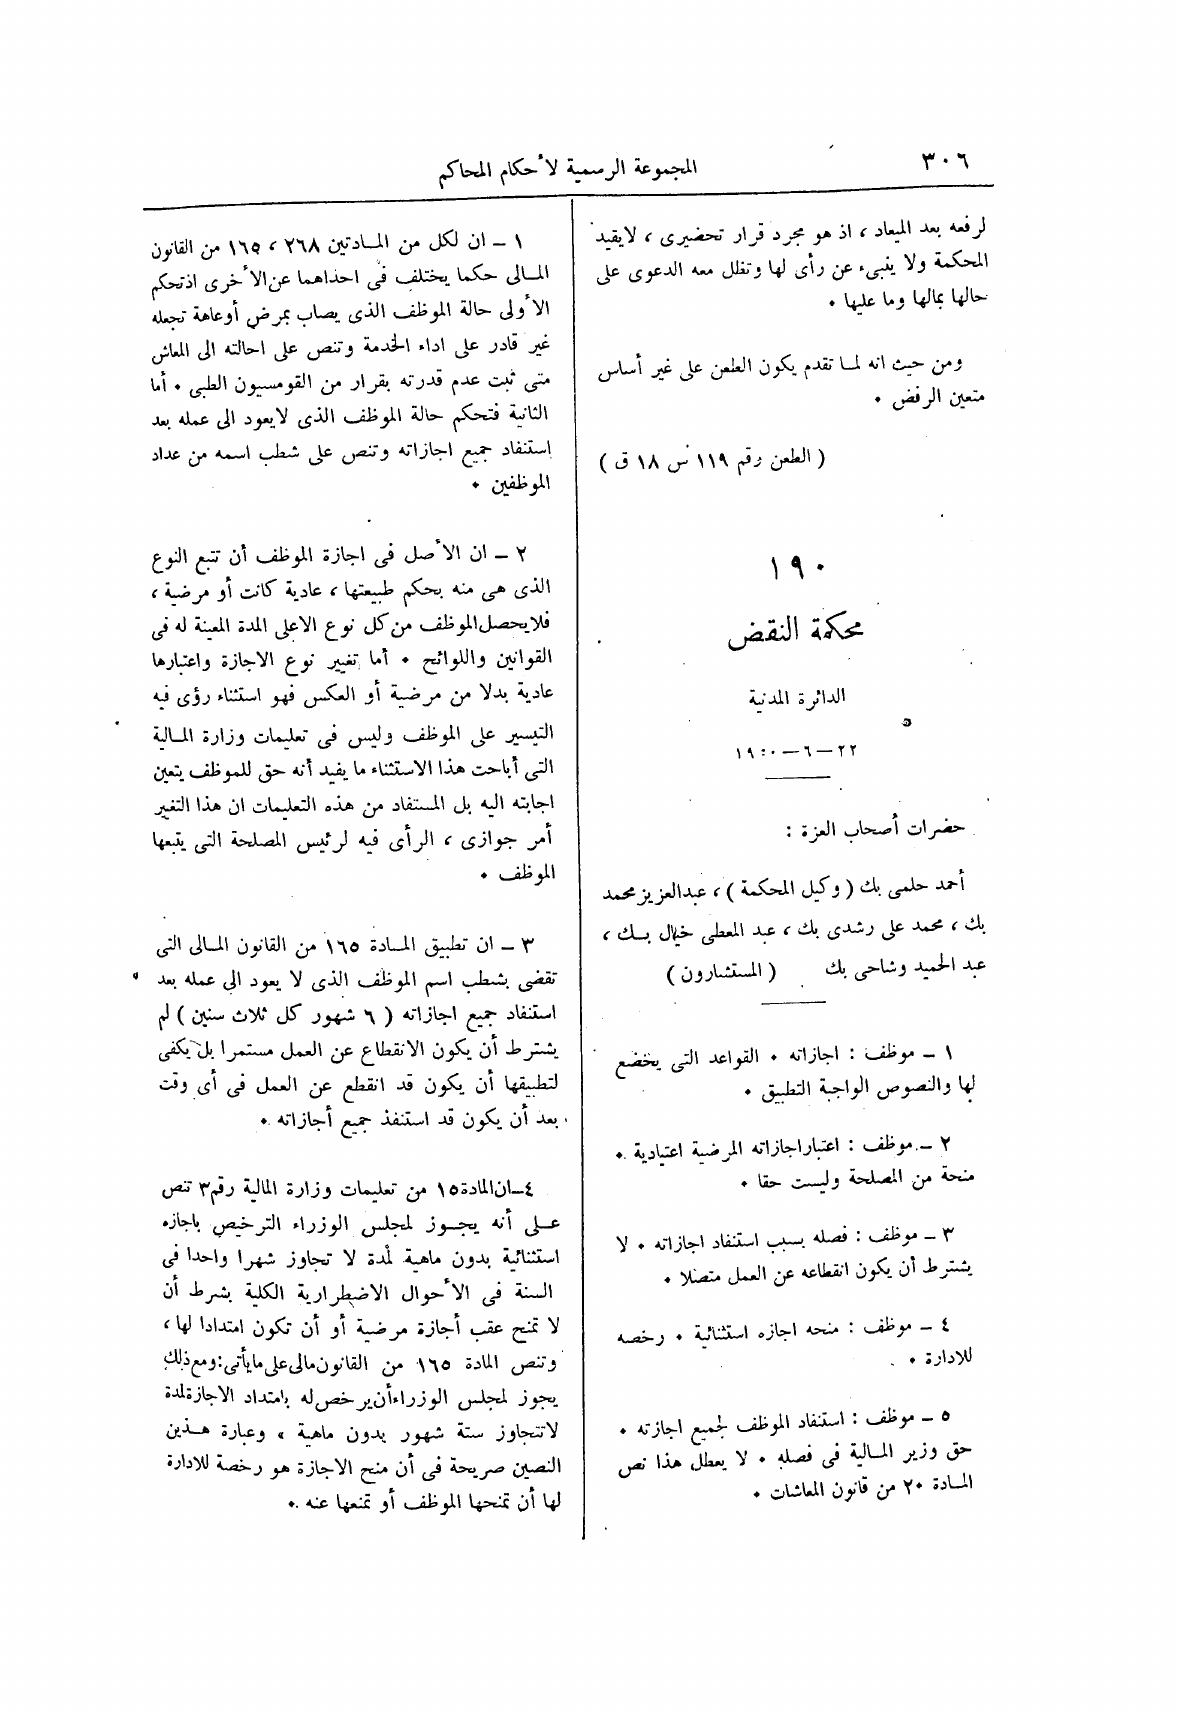 ٣٠٦
المجموعة الرسمية لأحكام المحاكم
لرفعه بعد الميعاد ، اذ هو مجرد قرار تحضيرى ، لايقيد
المحكمة ولا ينبىء عن رأى لها وتظل معه الدعوى على
حالها بمالها وما عليها ٠
ومن حيث انه لما تقدم يكون الطعن على غير أساس
متعين الرفض ٠
( الطعن رقم ١١٩ س ١٨ ق )
١٩٠
محكمة النقض
الدائرة المدنية
٢٢ — ٦ — ١٩٥٠
حضرات أصحاب العزة :
أحمد حلمى بك ( وكيل المحكمة ) ، عبدالعزيز محمد
بك ، محمد على رشدى بك ، عبد المعطى خيال بك ،
عبد الحميد وشاحى بك ( المستشارون )
١ – موظف : اجازاته ٠ القواعد التى يخضع
لها والنصوص الواجبة التطبيق ٠
٢ – موظف : اعتبار اجازاته المرضية اعتيادية ٠
منحة من المصلحة وليست حقا ٠
٣ – موظف : فصله بسبب استنفاد اجازاته ٠ لا
يشترط أن يكون انقطاعه عن العمل متصلا ٠
٤ – موظف : منحه اجازه استثنائية ٠ رخصه
للادارة ٠
٥ – موظف : استنفاد الموظف لجميع اجازته ٠
حق وزير المالية فى فصله ٠ لا يعطل هذا نص
المادة ٢٠ من قانون المعاشات ٠
١ – ان لكل من المادتين ٢٦٨ ، ١٦٥ من القانون
المالى حكما يختلف فى احداهما عن الأخرى اذ تحكم
الأولى حالة الموظف الذى يصاب بمرض أو عاهة تجعله
غير قادر على اداء الخدمة وتنص على احالته الى المعاش
متى ثبت عدم قدرته بقرار من القومسيون الطبى ٠ أما
الثانية فتحكم حالة الموظف الذى لايعود الى عمله بعد
استنفاد جميع اجازاته وتنص على شطب اسمه من عداد
الموظفين ٠
٢ – ان الأصل فى اجازة الموظف أن تتبع النوع
الذى هى منه بحكم طبيعتها ، عادية كانت أو مرضية ،
فلايحصل الموظف من كل نوع الاعلى المدة المعينة له فى
القوانين واللوائح ٠ أما تغيير نوع الاجازة واعتبارها
عادية بدلا من مرضية أو العكس فهو استثناء رؤى فيه
التيسير على الموظف وليس فى تعليمات وزارة المالية
التى أباحت هذا الاستثناء ما يفيد أنه حق للموظف يتعين
اجابته اليه بل المستفاد من هذه التعليمات ان هذا التغير
أمر جوازى ، الرأى فيه لرئيس المصلحة التى يتبعها
الموظف ٠
٣ – ان تطبيق المادة ١٦٥ من القانون المالى التى
تقضى بشطب اسم الموظف الذى لا يعود الى عمله بعد
استنفاد جميع اجازاته ( ٦ شهور كل ثلاث سنين ) لم
يشترط أن يكون الانقطاع عن العمل مستمرا بل يكفى
لتطبيقها أن يكون قد انقطع عن العمل فى أى وقت
بعد أن يكون قد استنفذ جميع أجازاته ٠
٤ – ان المادة ١٥ من تعليمات وزارة المالية رقم ٣ تنص
على أنه يجوز لمجلس الوزراء الترخيص باجازه
استثنائية بدون ماهية لمدة لا تجاوز شهرا واحدا فى
السنة فى الأحوال الاضطرارية الكلية بشرط أن
لا تمنح عقب أجازة مرضية أو أن تكون امتدادا لها ،
وتنص المادة ١٦٥ من القانون مالى على ما يأتى : ومع ذلك
يجوز لمجلس الوزراء أن يرخص له بامتداد الاجازة لمدة
لاتتجاوز ستة شهور بدون ماهية ، وعبارة هذين
النصين صريحة فى أن منح الاجازة هو رخصة للادارة
لها أن تمنحها الموظف أو تمنعها عنه ٠